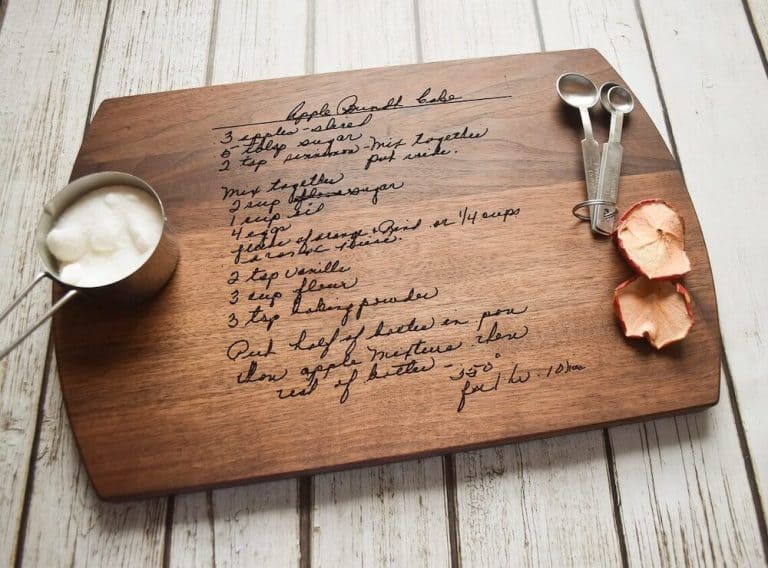 Apple Bundt Cake
3 apples - sliced
5 tblsp sugar
2 tsp cinnamon - Mix together
put aside.
Mix together
2 cup sugar
1 cup oil
4 eggs
of orange + Rind or 1/4 cups
orange
2 tsp vanilla
3 cup flour
3 tsp baking powder
Put half of batter in pan
then apple mixture then
rest of batter - 350°
for 1 hr. 10